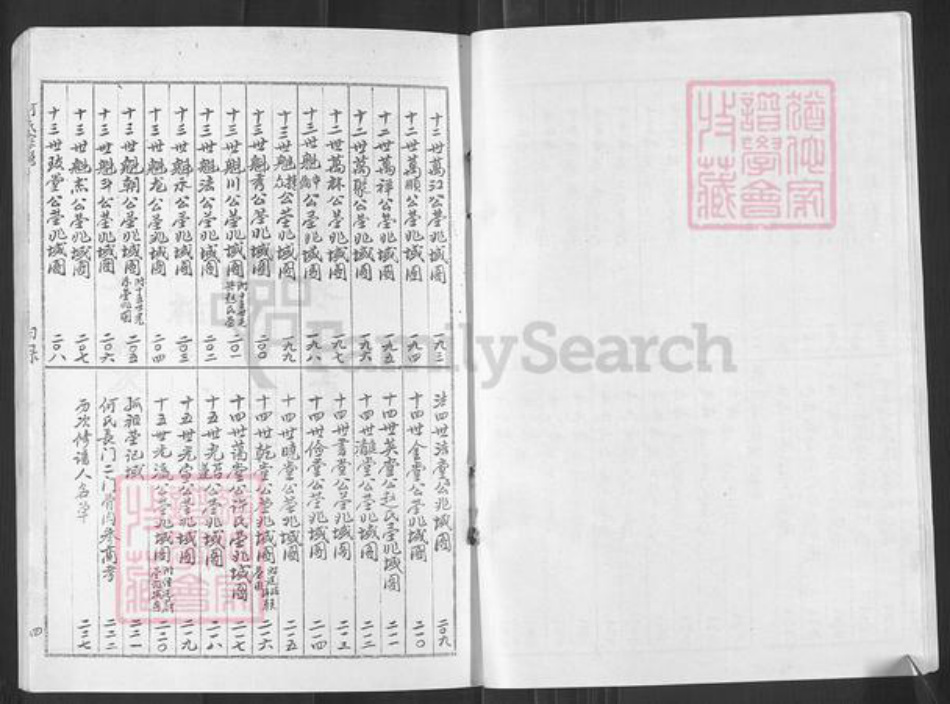 十二世萬江公塋兆域圖 一九三
十二世萬順公塋兆域圖 一九四
十二世萬祥公塋兆域圖 一九五
十二世萬聚公塋兆域圖 一九六
十二世萬林公塋兆域圖 一九七
十三世魁 公塋兆域圖 一九八
十三世魁 公塋兆域圖 一九九
十三世魁秀公塋兆域圖 二〇〇
十三世魁川公塋兆域圖 二〇一
十三世魁法公塋兆域圖 二〇二
十三世魁永公塋兆域圖 二〇三
十三世魁龙公塋兆域圖 二〇四
十三世魁朝公塋兆域圖 二〇五
十三世魁斗公塋兆域圖 二〇六
十三世魁杰公塋兆域圖 二〇七
十三世 堂公塋兆域圖 二〇八
四世法堂公兆域圖 二〇九
十四世金堂公塋兆域圖 二一〇
十四世英堂公赵氏塋兆域圖 二一一
十四世 堂公塋兆域圖 二一二
十四世書堂公塋兆域圖 二一三
十四世修堂公塋兆域圖 二一四
十四世曉堂公塋兆域圖 二一五
十四世乾堂公塋兆域圖 二一六
十四世蔼堂公许氏塋兆域圖 二一七
十五世光 公塋兆域圖 二一八
十五世光 公塋兆域圖 二一九
十五世光 公塋兆域圖 二二〇
孤祖塋记域 二二一
何氏長門二門骨肉 商考 二二二
历次修谱人名单 二二七
目录
四
FamilySearch
猶他家譜學會收藏